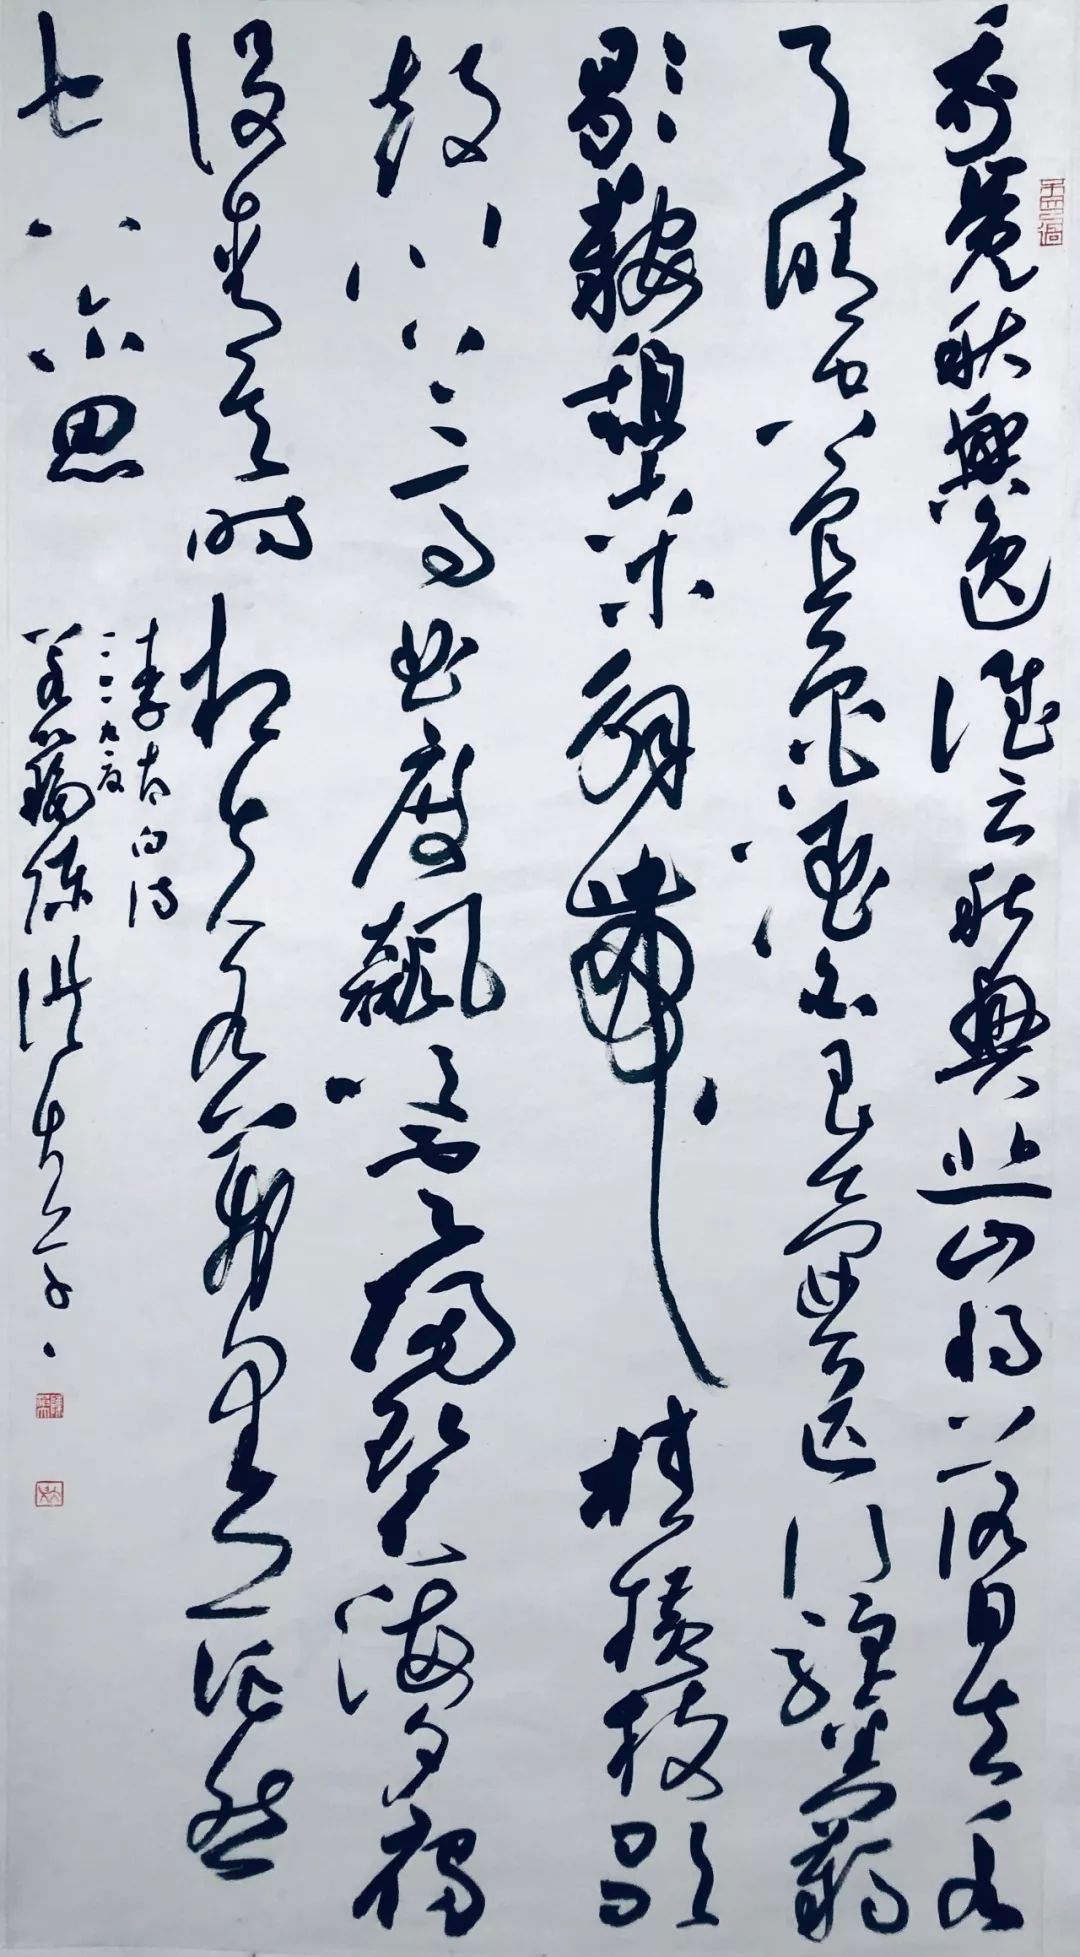 我覺秋興逸誰云秋興悲山將落日去水
與晴空宜魯酒白玉壺送行駐金羈
歇鞍憩古木解帶挂橫枝歇
鼓川上亭曲度神飆吹雲歸碧海夕雁
沒青天時相失各萬里茫然
空爾思
李太白詩
陳洪